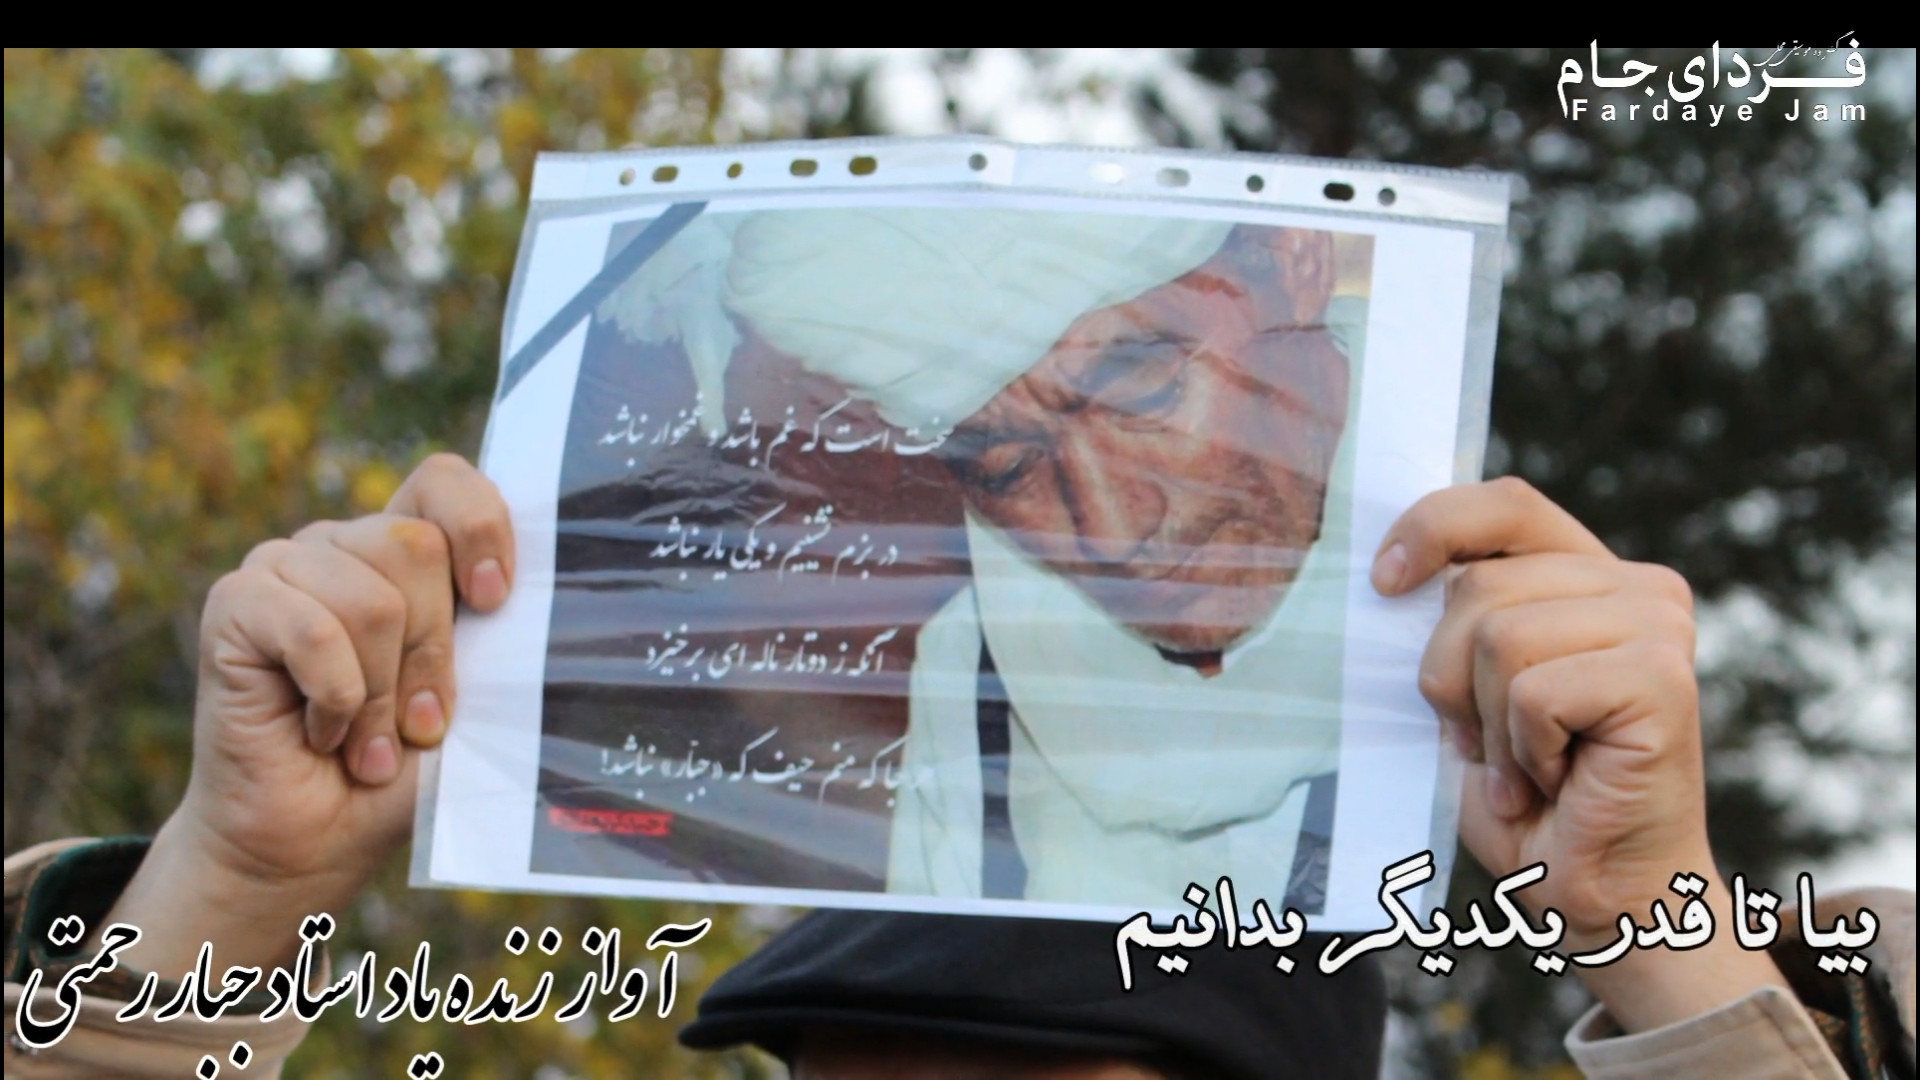 فردای جام
Fardaye Jam
سخت است که غم باشد و غمخوار نباشد
در بزم نشینیم و یکی یار نباشد
آنکه ز دوتار ناله ای برخیزد
جا که منم حیف که «جبّار» نباشد!
بیا تا قدر یکدیگر بدانیم
آواز زنده یاد استاد جبار رحمتی